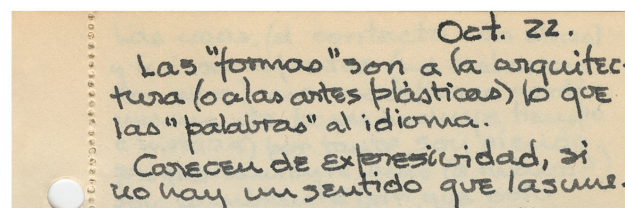 Oct. 22.
Las "formas" son a la arquitec-
tura (o a las artes plásticas) lo que
las "palabras" al idioma.
Carecen de expresividad, si
no hay un sentido que las une.